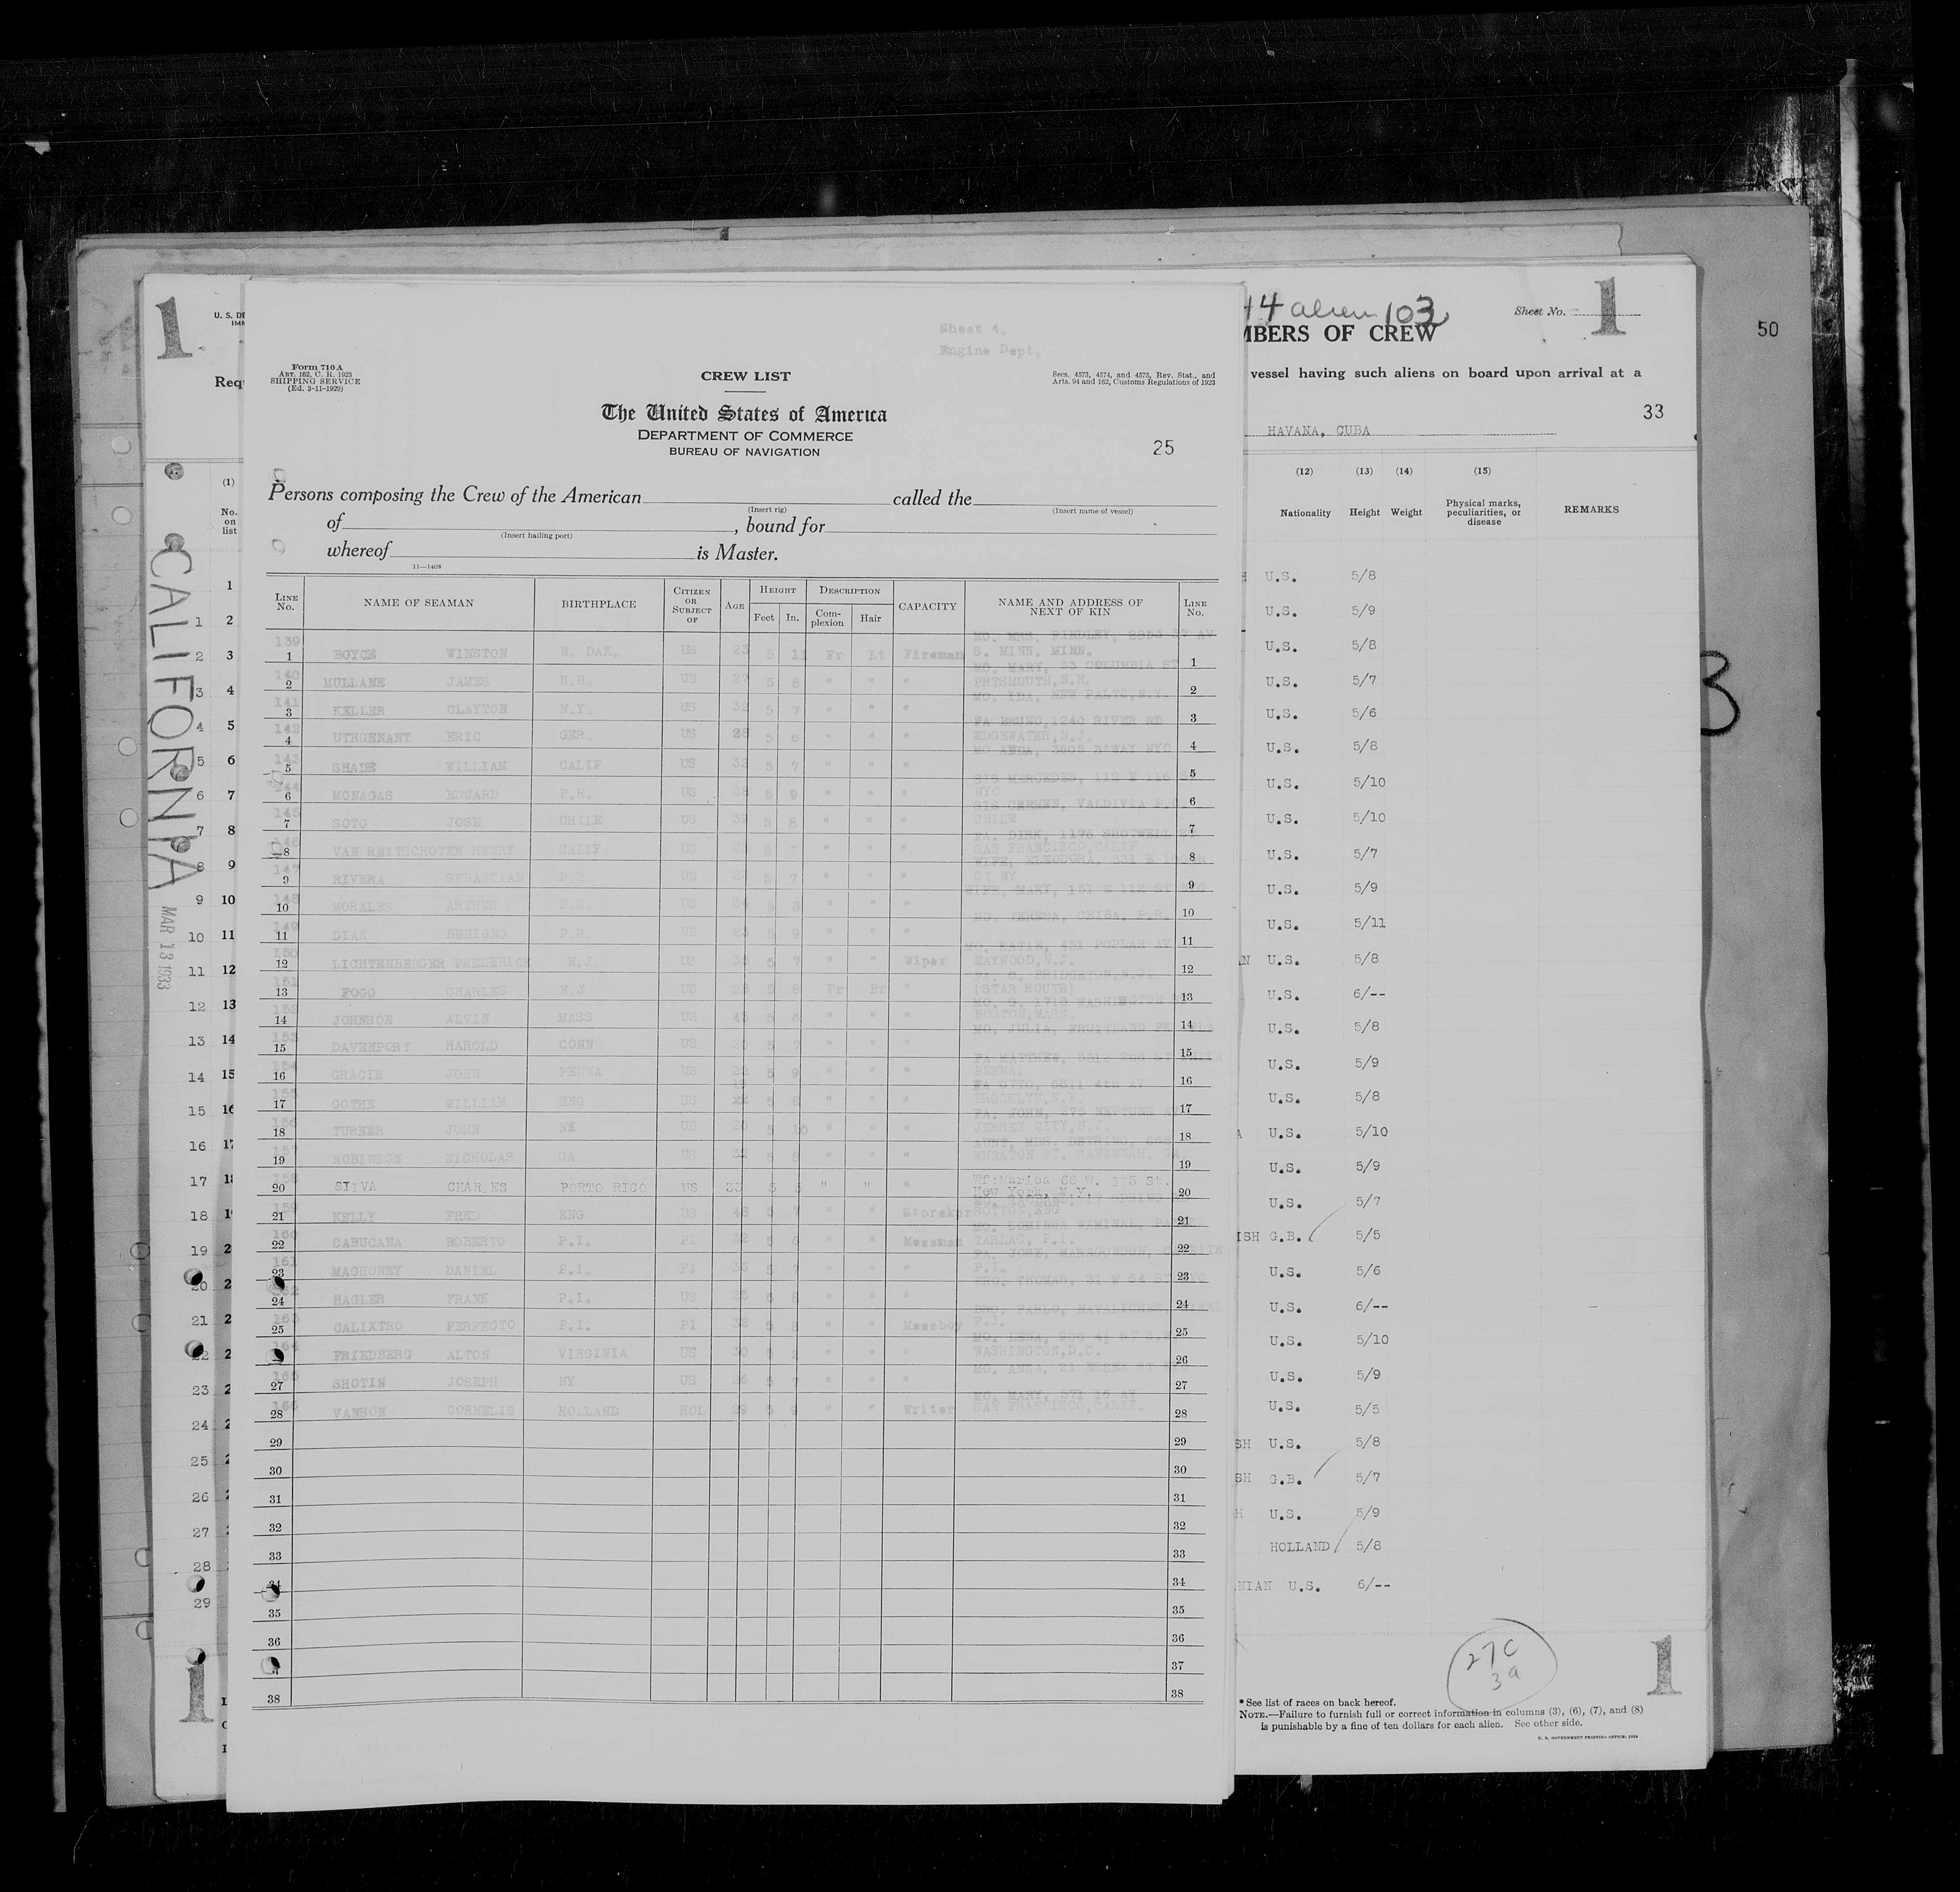 Sheet 4.
Engine Dept.
Form 710 A
ART. 162, C. R. 1923
SHIPPING SERVICE
(Ed. 3-11-1929)
CREW LIST
Secs. 4573, 4574, and 4575, Rev. Stat., and
Arts. 94 and 162, Customs Regulations of 1923
The United States of America
DEPARTMENT OF COMMERCE
BUREAU OF NAVIGATION
25
Persons composing the Crew of the American called the
(Insert rig) (Insert name of vessel)
of , bound for
(Insert hailing port)
whereof is Master.
11—1408
LINE No. NAME OF SEAMAN BIRTHPLACE CITIZEN OR SUBJECT OF AGE HEIGHT Feet In. DESCRIPTION Complexion Hair CAPACITY NAME AND ADDRESS OF NEXT OF KIN LINE No.
139 1 BOYCE WINSTON N. DAK. US 23 5 11 Fr Lt Fireman S. MINN. MINN. 1
140 2 MULLANE JAMES N.H. US 27 5 8 " " " MO. MARY, 33 COLUMBIA ST PRTSMOUTH, N.H. 2
141 3 KELLER CLAYTON N.Y. US 32 5 7 " " " MO. IDA, NEW PALTZ, N.Y. 3
142 4 UTHGENANT ERIC GER. US 28 5 6 " " " FA BRUNO, 1240 RIVER RD EDGEWATER, N.J. 4
143 5 SHADE WILLIAM CALIF US 32 5 7 " " " 5
144 6 MONAGAS EDWARD P.R. US 28 5 9 " " " SIS MERCEDES, 112 E 116 NYC 6
145 7 SOTO JOSE CHILE US 5 8 " " " SIS CARMEN, VALDIVIA CHILE 7
146 8 VAN REITSCHOTEN HENRY CALIF US " " " FA. DIRK, 1176 SHOTWELL SAN FRANCISCO, CALIF 8
147 9 RIVERA SEBASTIAN P.R. US 5 7 " " " WIFE, ELEODORA, 331 E ST NY 9
148 10 MORALES ARTHUR P.R. US 5 8 " " " WIFE, MARY, 151 E 112 ST 10
149 11 DIAZ BENIGNO P.R. US 5 9 " " " MO. TERESA, CEIBA, P.R. 11
150 12 LICHTENBERGER FREDERICK N.J. US 5 7 " " Wiper MO. KATIE, 451 POPLAR AV MAYWOOD, N.J. 12
151 13 FOGG CHARLES N.J. US 5 8 Fr Br " BRIDGETON, N.J. (STAR ROUTE) 13
152 14 JOHNSON ALVIN MASS US 5 6 " " " MO. G. 1716 WASHINGTON BOSTON, MASS. 14
153 15 DAVENPORT HAROLD CONN US 20 5 7 " " " MO. JULIA, FRUITLAND 15
154 16 GRACIE JOHN PENNA US 22 5 9 " " " FA MATTHEW, PENNA. 16
155 17 GOTHE WILLIAM ENG US 5 8 " " " FA OTTO, 6811 4th AV BROOKLYN, N.Y. 17
156 18 TURNER JOHN US 20 5 10 " " " FA. JOHN, 275 NEPTUNE JERSEY CITY, N.J. 18
157 19 ROBINSON NICHOLAS GA US 32 5 8 " " " AUNT, MRS. WHEATON ST. SAVANNAH, GA. 19
158 20 SILVA CHARLES PORTO RICO US 33 5 5 " " " Wf: Marion 66 W. 115 St. New York, N.Y. 20
159 21 KELLY FRED ENG US 48 5 7 " " Storekpr ENG 21
160 22 CABUCANA ROBERTO P.I. PI 32 5 6 " " Messman TARLAC, P.I. 22
161 23 MAGHONEY DANIEL P.I. PI 5 7 " " " FA. JOSE, MARAGONDON, P.I. 23
162 24 HAGLER FRANK P.I. US 25 5 8 " " " BRO. THOMAS, 31 W 64 ST NYC 24
163 25 CALIXTRO PERFECTO P.I. PI 32 5 8 " " Messboy BRO. PABLO, P.I. 25
164 FRIEDBERG ALTON VIRGINIA US 30 5 " " " MO. LENA, WASHINGTON, D.C. 26
165 27 SHOTIN JOSEPH NY US 26 5 7 " " " MO. ANNA, 21 ESSEX ST 27
166 28 VANSON CORNELIS HOLLAND HOL 29 5 9 " " Writer MO. MARY, 571 15 AV SAN FRANCISCO, CALIF. 28
29 29
30 30
31 31
32 32
33 33
34 34
35 35
36 36
37
38 38
1
U. S. DE
IMM
Requ
(1)
No. on list
CALIFORNIA
MAR 13 1933
1
1 2
2 3
3 4
4 5
5 6
6 7
7 8
8 9
9 10
10 11
11 12
12 13
13 14
14 15
15 16
16 17
17 18
18
19
20
21
22
23
24
25
26
27
28
29
1
44 alien 103
Sheet No.
1
MBERS OF CREW
vessel having such aliens on board upon arrival at a
33
HAVANA, CUBA
50
3
(12) (13) (14) (15)
Nationality Height Weight Physical marks, peculiarities, or disease REMARKS
H U.S. 5/8
U.S. 5/9
U.S. 5/8
U.S. 5/7
U.S. 5/6
U.S. 5/8
U.S. 5/10
U.S. 5/10
U.S. 5/7
U.S. 5/9
U.S. 5/11
AN U.S. 5/8
U.S. 6/--
U.S. 5/8
U.S. 5/9
U.S. 5/8
A U.S. 5/10
U.S. 5/9
U.S. 5/7
ISH G.B. 5/5
U.S. 5/6
U.S. 6/--
U.S. 5/10
U.S. 5/9
U.S. 5/5
SH U.S. 5/8
SH G.B. 5/7
H U.S. 5/9
HOLLAND 5/8
NIAN U.S. 6/--
27C
3a
1
* See list of races on back hereof.
NOTE.—Failure to furnish full or correct information in columns (3), (6), (7), and (8)
is punishable by a fine of ten dollars for each alien. See other side.
U. S. GOVERNMENT PRINTING OFFICE: 1929